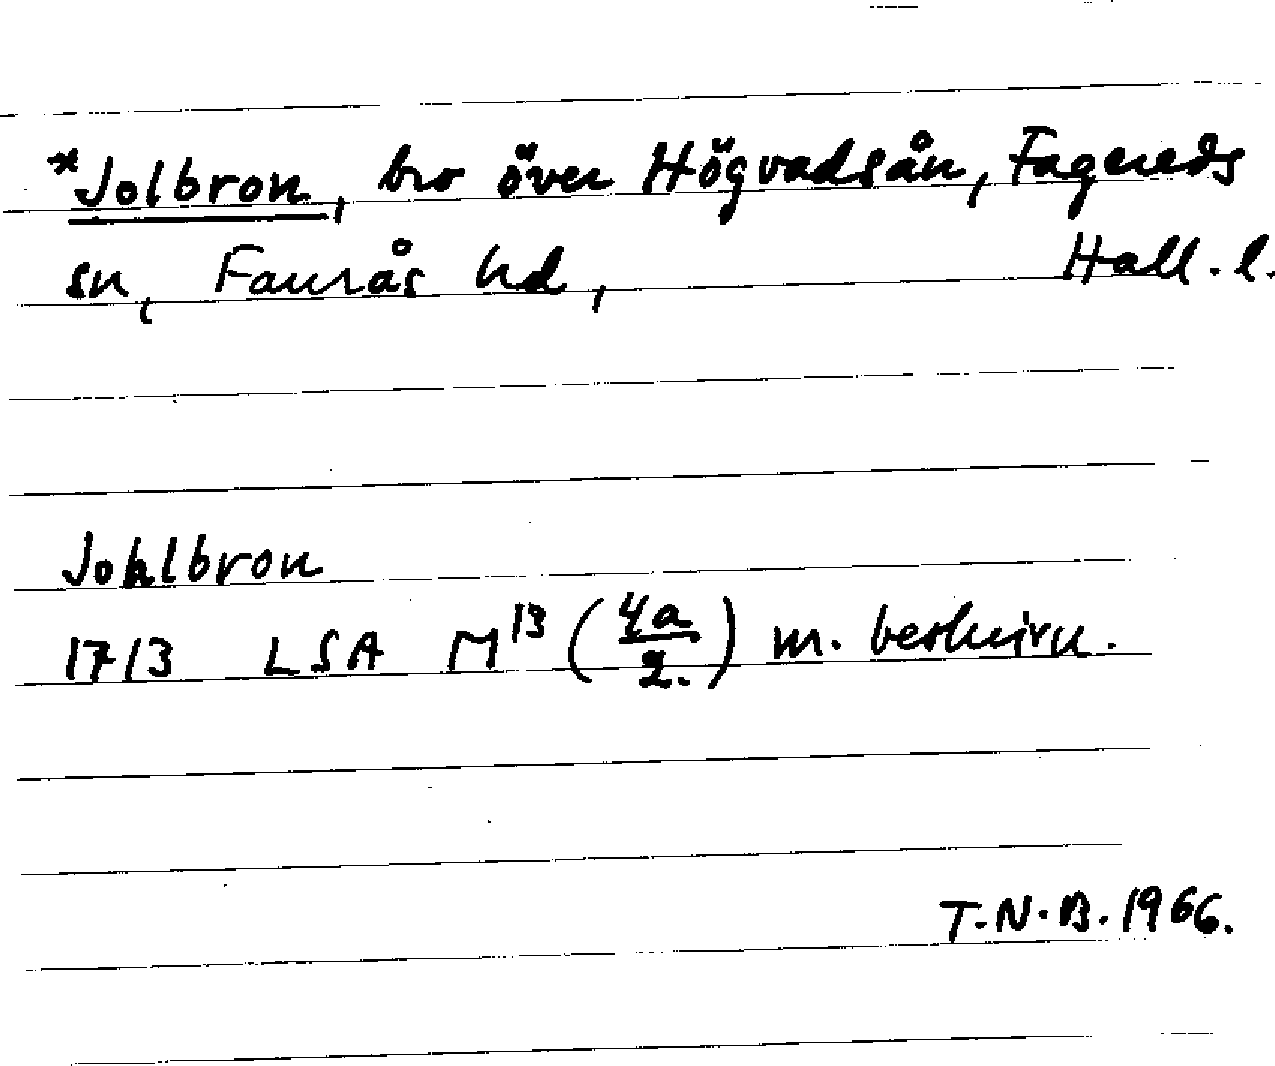 *Jolbron, bro över Högvadsån, Fagereds
sn, Faurås hd, Hall. l.
Johlbron
1713 LSA M¹³ (4a/2.) m. beskrivn.
T.N.B. 1966.